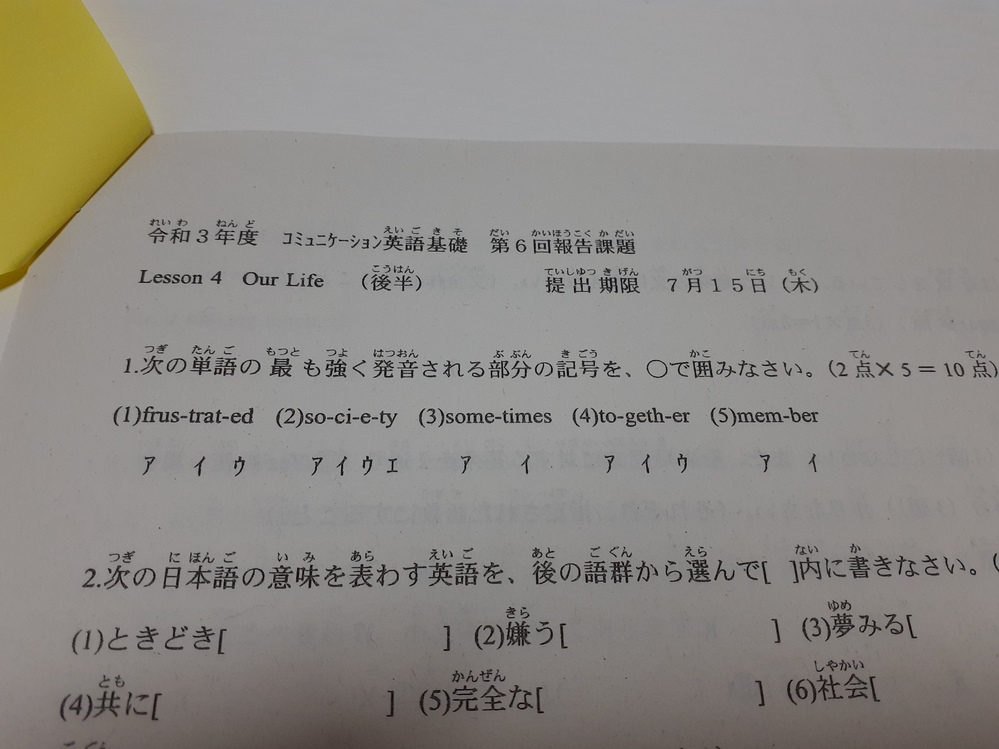 令和3年度 コミュニケーション英語基礎 第6回報告課題
Lesson 4 Our Life (後半) 提出期限 7月15日(木)
1.次の単語の最も強く発音される部分の記号を、○で囲みなさい。(2点×5=10点)
(1)frus-trat-ed (2)so-ci-e-ty (3)some-times (4)to-geth-er (5)mem-ber
ア イ ウ ア イ ウ エ ア イ ア イ ウ ア イ
2.次の日本語の意味を表わす英語を、後の語群から選んで[ ]内に書きなさい。(
(1)ときどき[ ] (2)嫌う[ ] (3)夢みる[
(4)共に[ ] (5)完全な[ ] (6)社会[